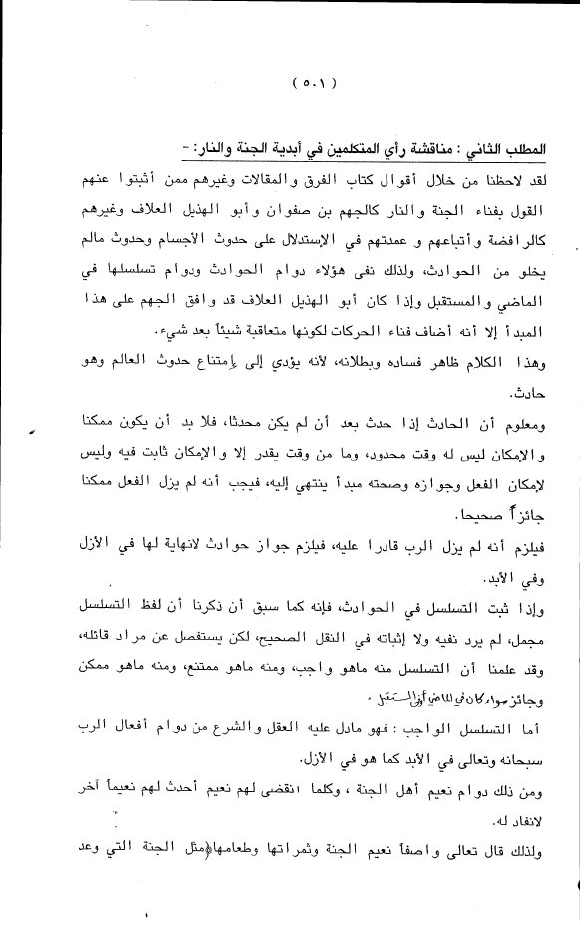 ( ٥٠١ )
المطلب الثاني : مناقشة رأي المتكلمين في أبدية الجنة والنار: -
لقد لاحظنا من خلال أقوال كتاب الفرق والمقالات وغيرهم ممن أثبتوا عنهم
القول بفناء الجنة والنار كالجهم بن صفوان وأبو الهذيل العلاف وغيرهم
كالرافضة وأتباعهم وعمدتهم في الإستدلال على حدوث الأجسام وحدوث مالم
يخلو من الحوادث، ولذلك نفى هؤلاء دوام الحوادث ودوام تسلسلها في
الماضي والمستقبل وإذا كان أبو الهذيل العلاف قد وافق الجهم على هذا
المبدأ إلا أنه أضاف فناء الحركات لكونها متعاقبة شيئاً بعد شيء.
وهذا الكلام ظاهر فساده وبطلانه، لأنه يؤدي إلى إمتناع حدوث العالم وهو
حادث.
ومعلوم أن الحادث إذا حدث بعد أن لم يكن محدثا، فلا بد أن يكون ممكنا
والإمكان ليس له وقت محدود، وما من وقت يقدر إلا والإمكان ثابت فيه وليس
لإمكان الفعل وجوازه وصحته مبدأ ينتهي إليه، فيجب أنه لم يزل الفعل ممكنا
جائزاً صحيحا.
فيلزم أنه لم يزل الرب قادرا عليه، فيلزم جواز حوادث لانهاية لها في الأزل
وفي الأبد.
وإذا ثبت التسلسل في الحوادث، فإنه كما سبق أن ذكرنا أن لفظ التسلسل
مجمل، لم يرد نفيه ولا إثباته في النقل الصحيح، لكن يستفصل عن مراد قائله،
وقد علمنا أن التسلسل منه ماهو واجب، ومنه ماهو ممتنع، ومنه ماهو ممكن
وجائز سواء كان في الماضي أو في المستقبل .
أما التسلسل الواجب : فهو مادل عليه العقل والشرع من دوام أفعال الرب
سبحانه وتعالى في الأبد كما هو في الأزل.
ومن ذلك دوام نعيم أهل الجنة ، وكلما انقضى لهم نعيم أحدث لهم نعيماً آخر
لانفاد له.
ولذلك قال تعالى واصفاً نعيم الجنة وثمراتها وطعامها(مثل الجنة التي وعد